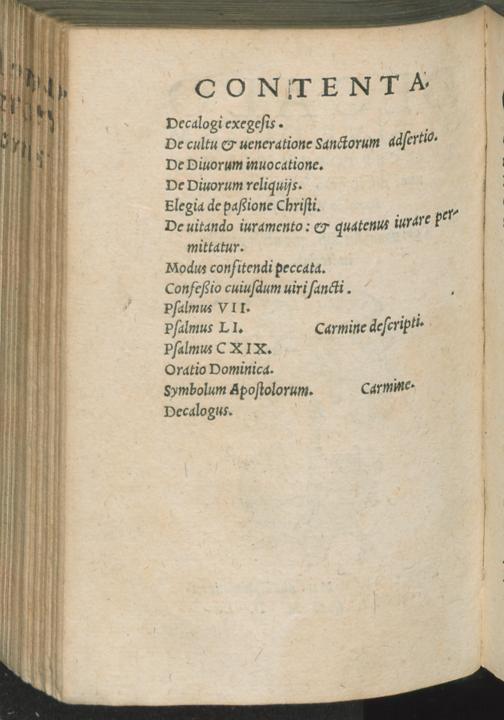 CONTENTA.
Decalogi exegesis.
De cultu & ueneratione Sanctorum adsertio.
De Diuorum inuocatione.
De Diuorum reliquijs.
Elegia de paßione Christi.
De uitando iuramento: & quatenus iurare per-
mittatur.
Modus confitendi peccata.
Confeßio cuiusdum uiri sancti.
Psalmus VII.
Psalmus LI. Carmine descripti.
Psalmus CXIX.
Oratio Dominica.
Symbolum Apostolorum. Carmine.
Decalogus.